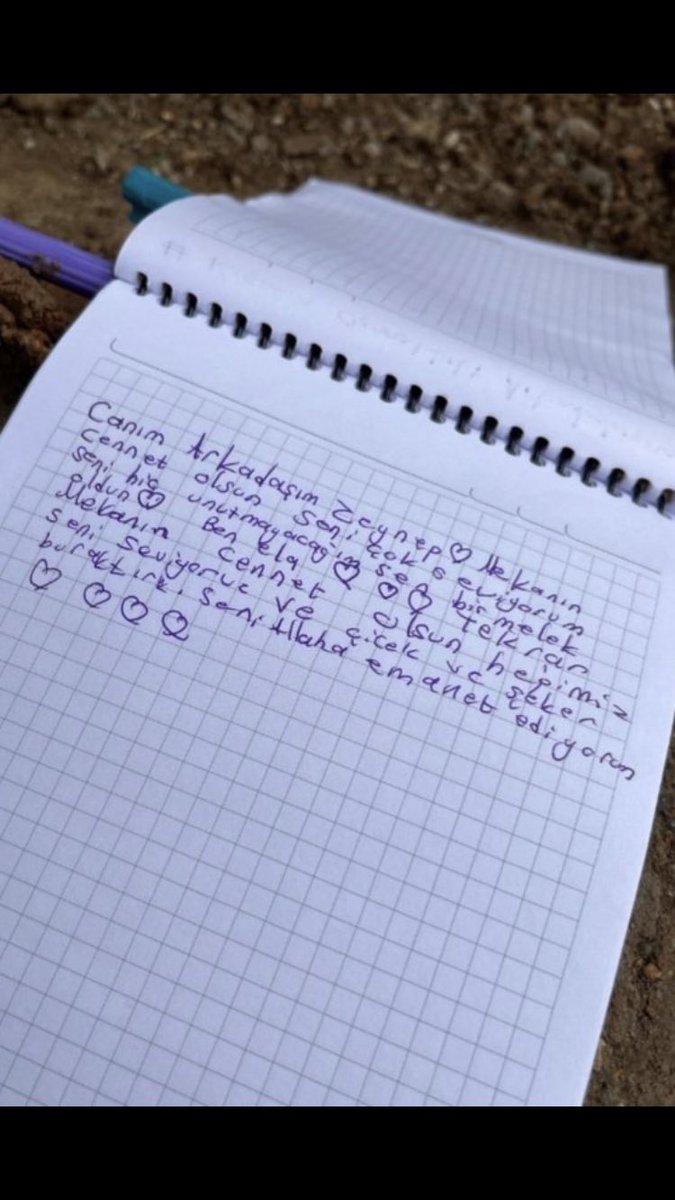 Canım Arkadaşım Zeynep ♡ Mekanın
cennet olsun seni çok seviyorum
seni hiç unutmayacağım sen bir melek
oldun ♡ Ben Ela ♡ ♡ ♡ tekrar
Mekanın cennet olsun hepimiz
seni seviyoruz ve çiçek ve şeker
buraktırk. Seni Allaha emanet ediyorum
♡ ♡ ♡ ♡